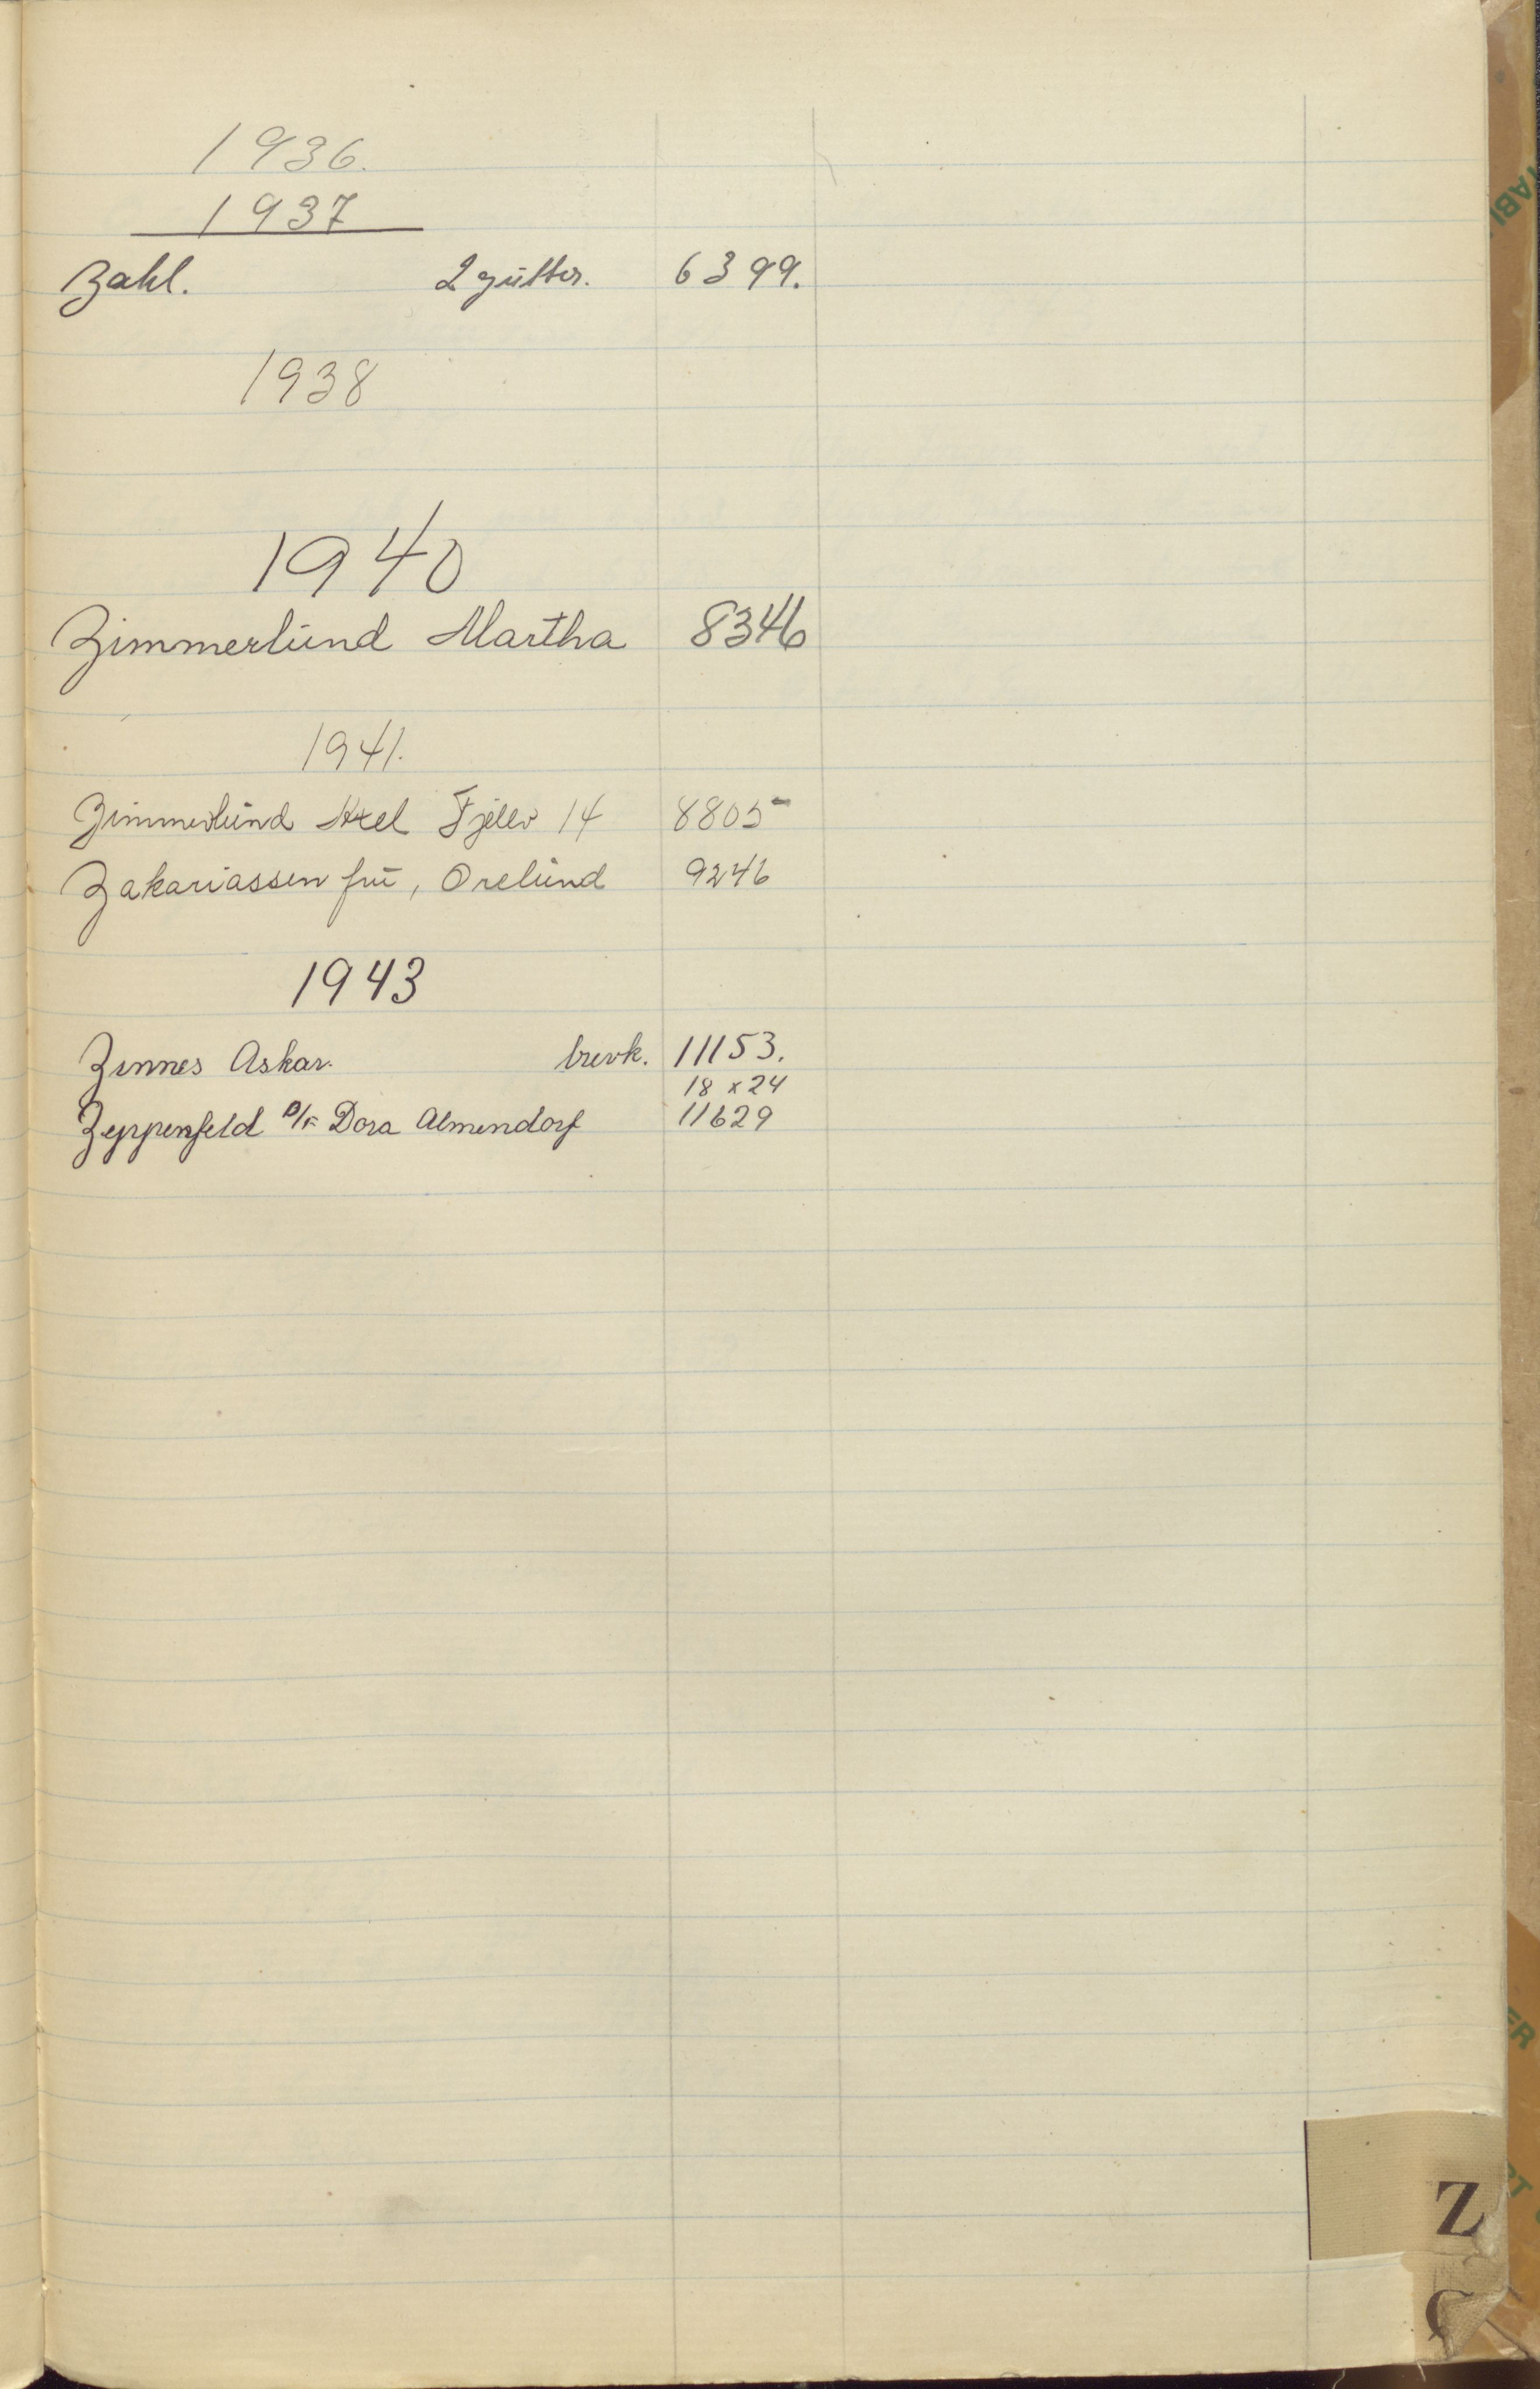 1936.
1937
Zahl. 2 gutter. 6399.
1938
1940
Zimmerlund Martha 8346
1941.
Zimmerlund Axel Fjellv 14 8805
Zakariassen fru, Orelund 9246
1943
Zinnes Askar. brevk. 11153.
18 x 24
Zeppenfeld D/F Dora Almendorf 11629
Z